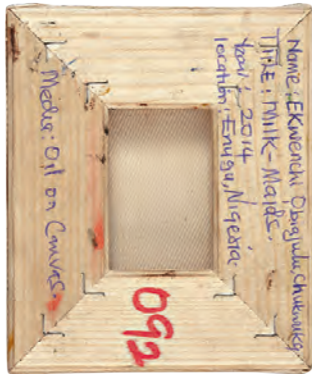 Name: Ekwenchi Obiajulu Chukwuka
Title: Milk-Maids.
Year: 2014
location: Enugu, Nigeria
Media: Oil on Canvas.
092